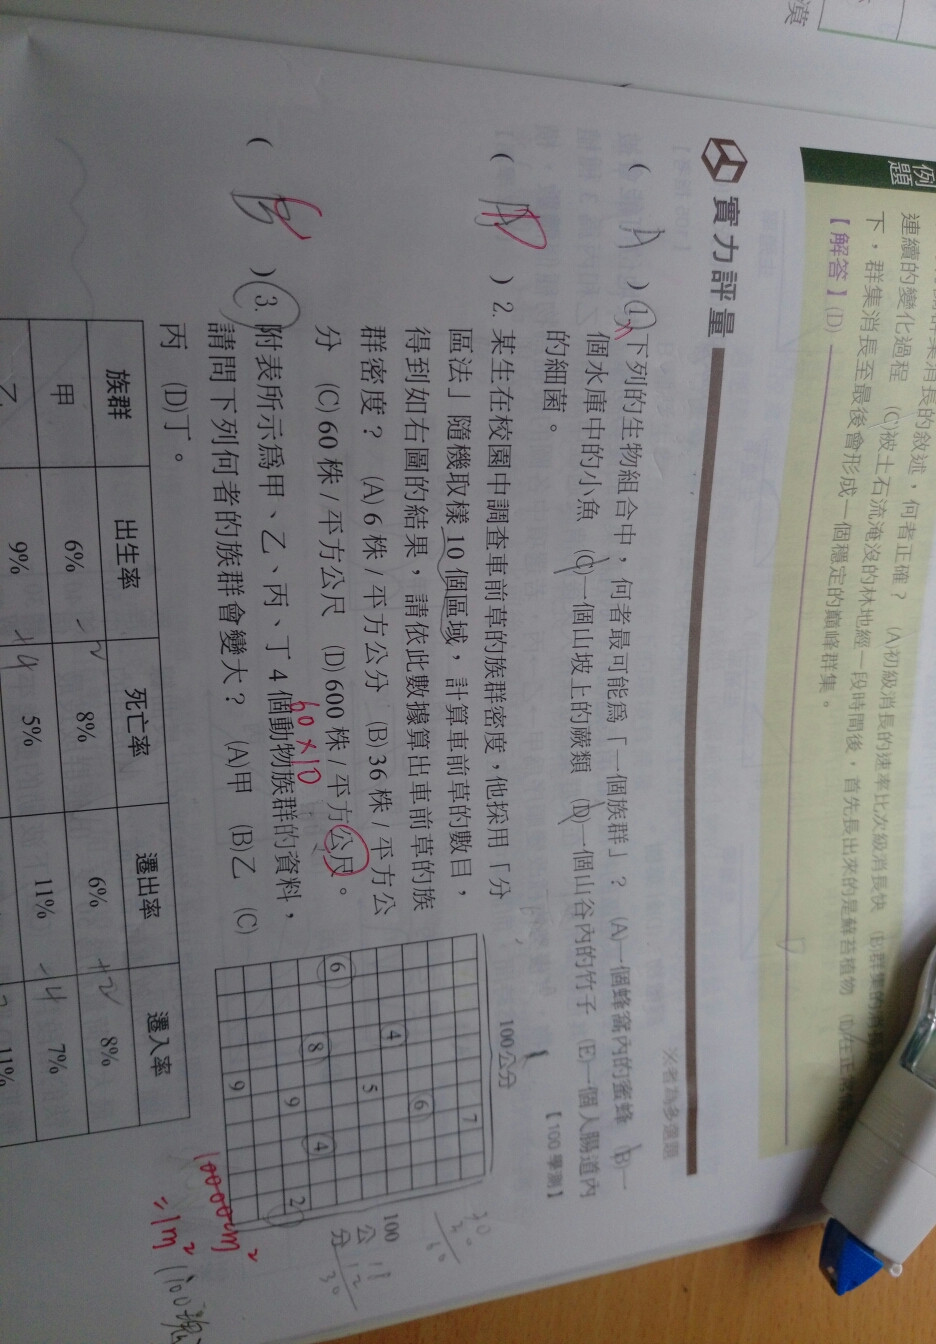 例
題
連續的變化過程 (C)被土石流淹沒的林地經一段時間後，首先長出來的是蘚苔植物
下，群集消長至最後會形成一個穩定的巔峰群集。
【解答】(D)
實力評量
※者為多選題
( A ) 1. 下列的生物組合中，何者最可能為「一個族群」？ (A)一個蜂窩內的蜜蜂 (B)一
個水庫中的小魚 (C)一個山坡上的蕨類 (D)一個山谷內的竹子 (E)一個人腸道內
的細菌。 【100學測】
( D ) 2. 某生在校園中調查車前草的族群密度，他採用「分
區法」隨機取樣 10 個區域，計算車前草的數目，
得到如右圖的結果，請依此數據算出車前草的族
群密度？ (A) 6 株 / 平方公分 (B) 36 株 / 平方公
分 (C) 60 株 / 平方公尺 (D) 600 株 / 平方公尺。
60×10
100公分
7
6
4 5
6 8 9 4 2
9
100
公
分
70
30
60
11
12
30
10000cm²
=1m²
( B ) 3. 附表所示為甲、乙、丙、丁 4 個動物族群的資料，
請問下列何者的族群會變大？ (A)甲 (B)乙 (C)
丙 (D)丁。
族群 出生率 死亡率 遷出率 遷入率
甲 6% -2 8% 6% +2 8%
乙 9% +4 5% 11% -4 7%
11%